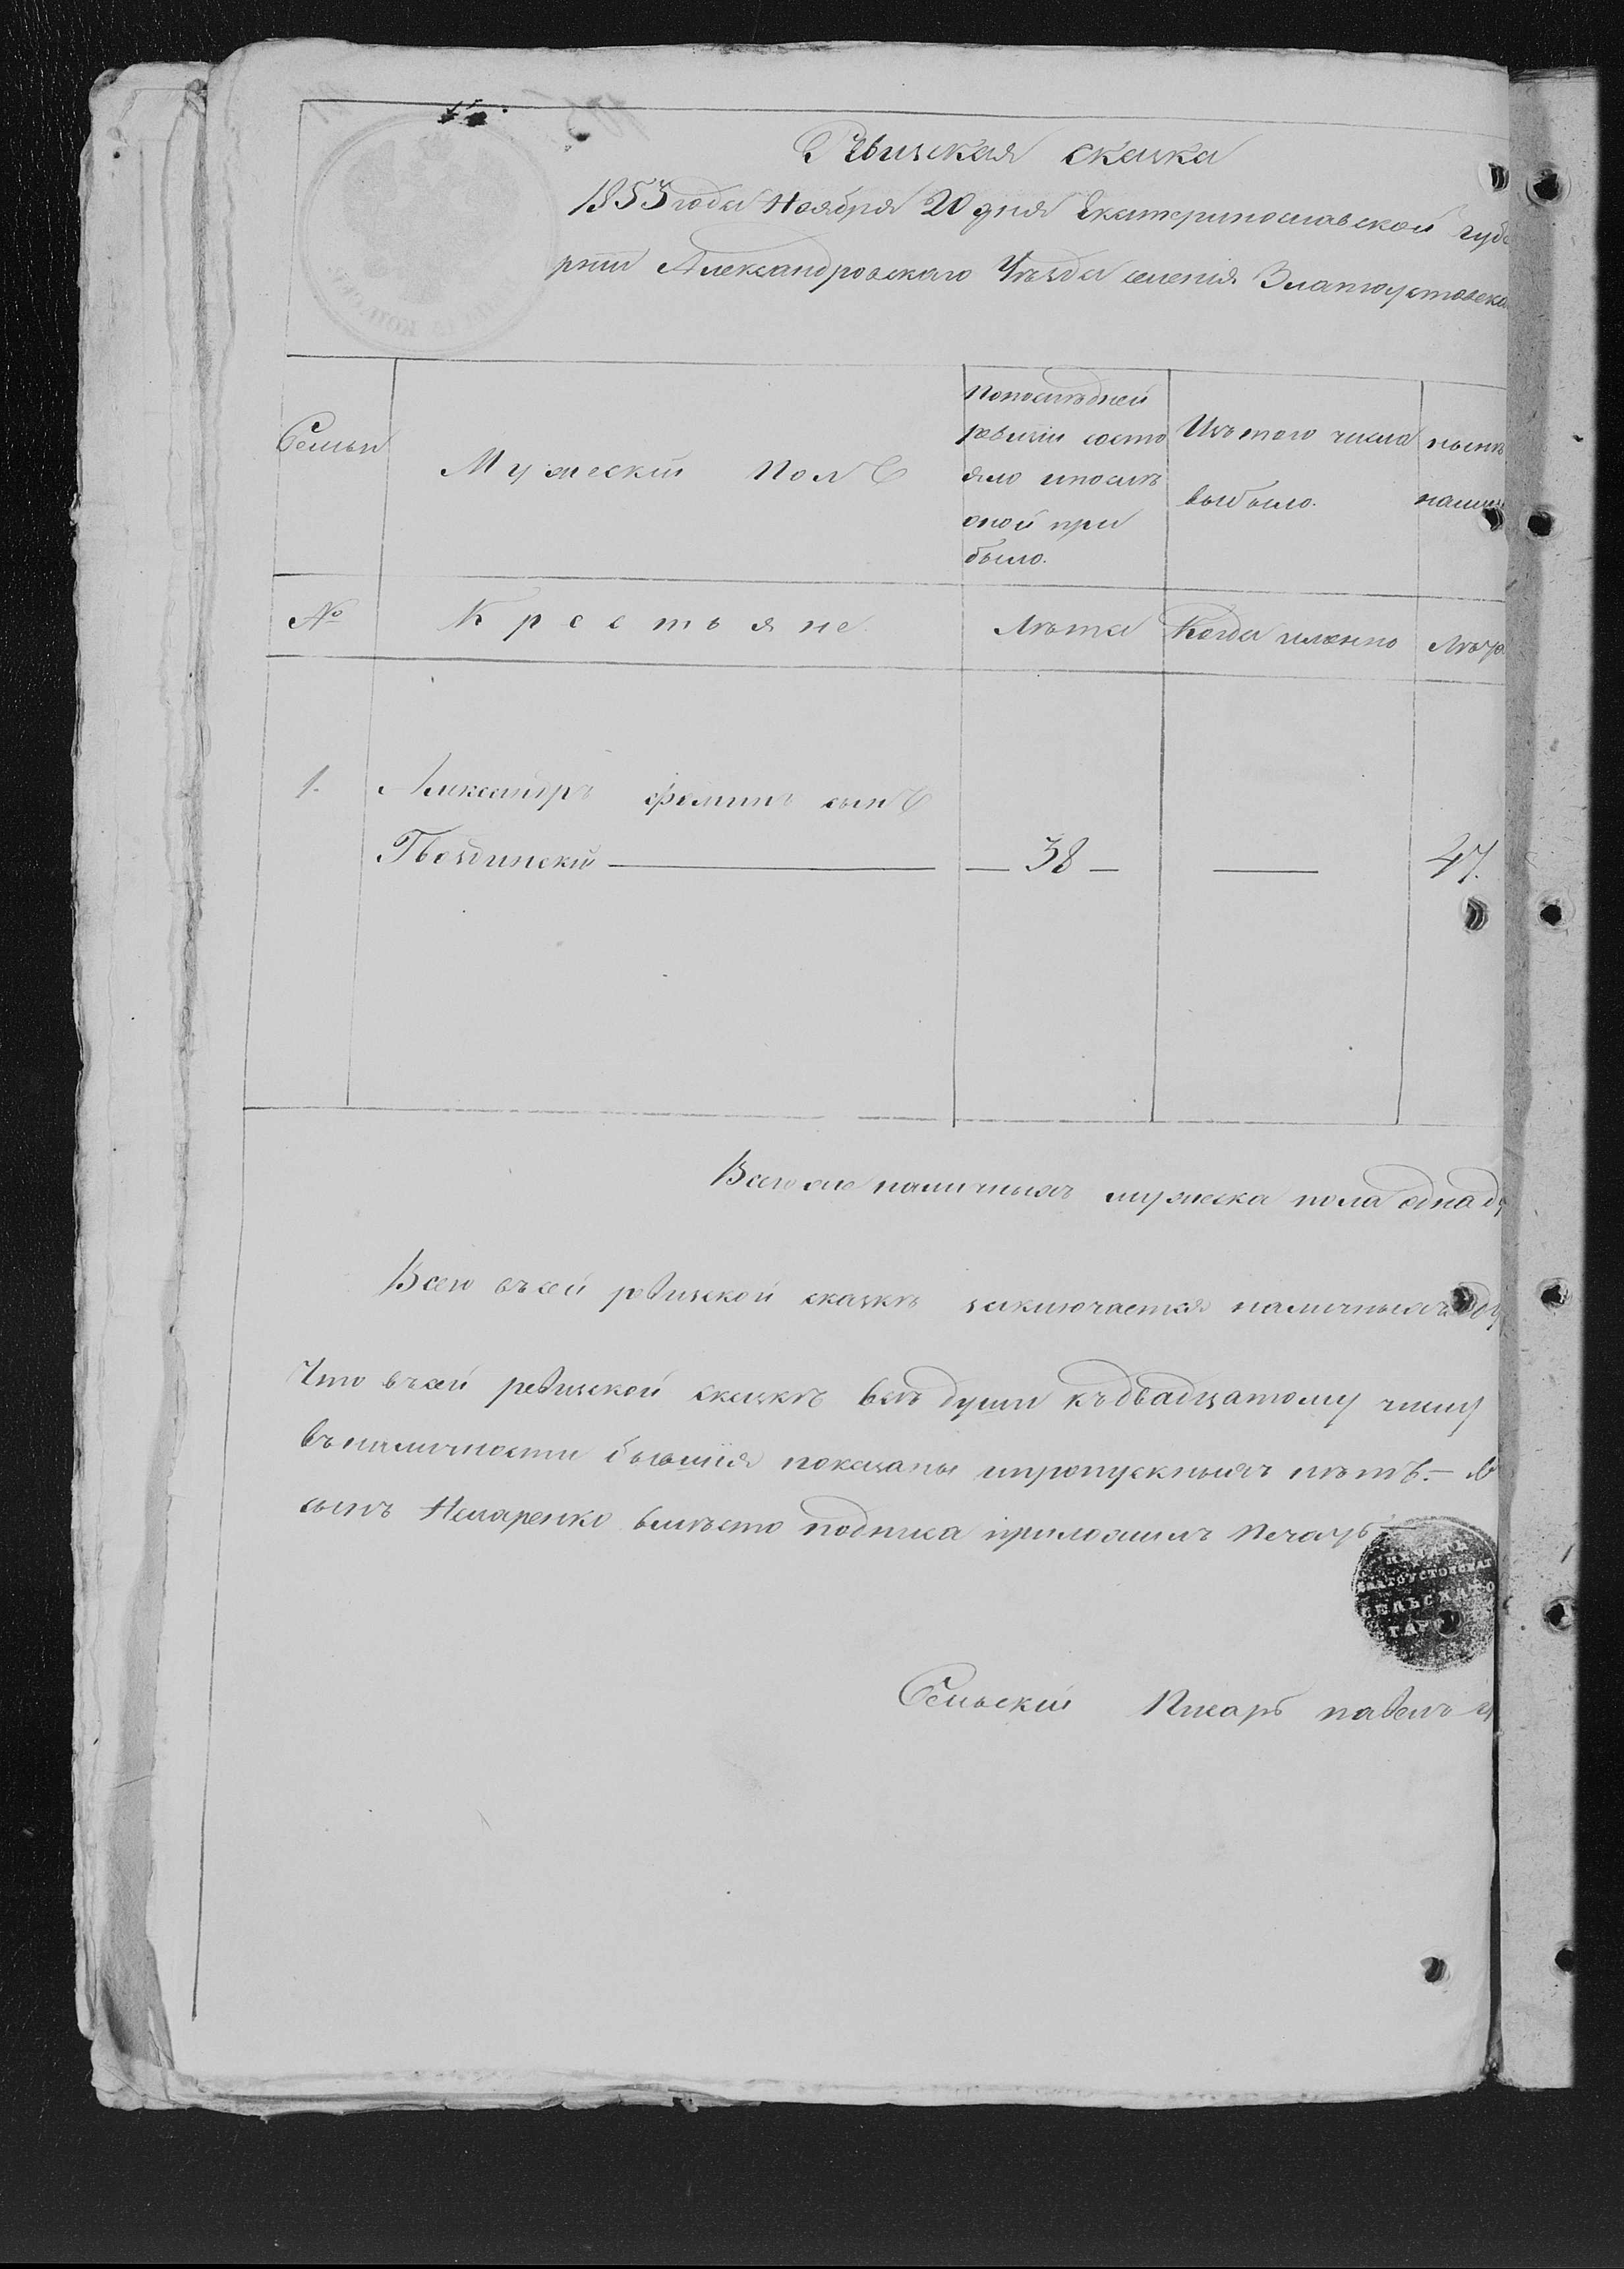 Ревизская сказка
1853 года Ноября 20 дня Екатеринославской губе
рніи Александровскаго Уѣзда селенія Златоустовска
Семьи
Мужескій Полъ
Попослѣдней
ревизіи состо
яло ипослѣ
оной при
было.
Изътого числа
выбыло.
нынѣ
налич
№
Крестьяне
Лѣта
Когда именно
Лѣта
1.
Александръ Фоминъ сынъ
Гвоздинскій
38
47.
Всего наличныхъ мужеска пола одна ду
Всего въсей ревизской сказкѣ заключается наличныхъ
Что въсей ревизской сказкѣ всѣ души къдвадцатому числу
въналичности бывшія показаны ипропускныхъ нѣтъ.—
сынъ вмѣсто подписа приложилъ Печать
ПЕЧАТЬ
ЗЛАТОУСТОВСКАГ
СЕЛЬСКАГО
СТАРО
Сельскій Писарь павелъ